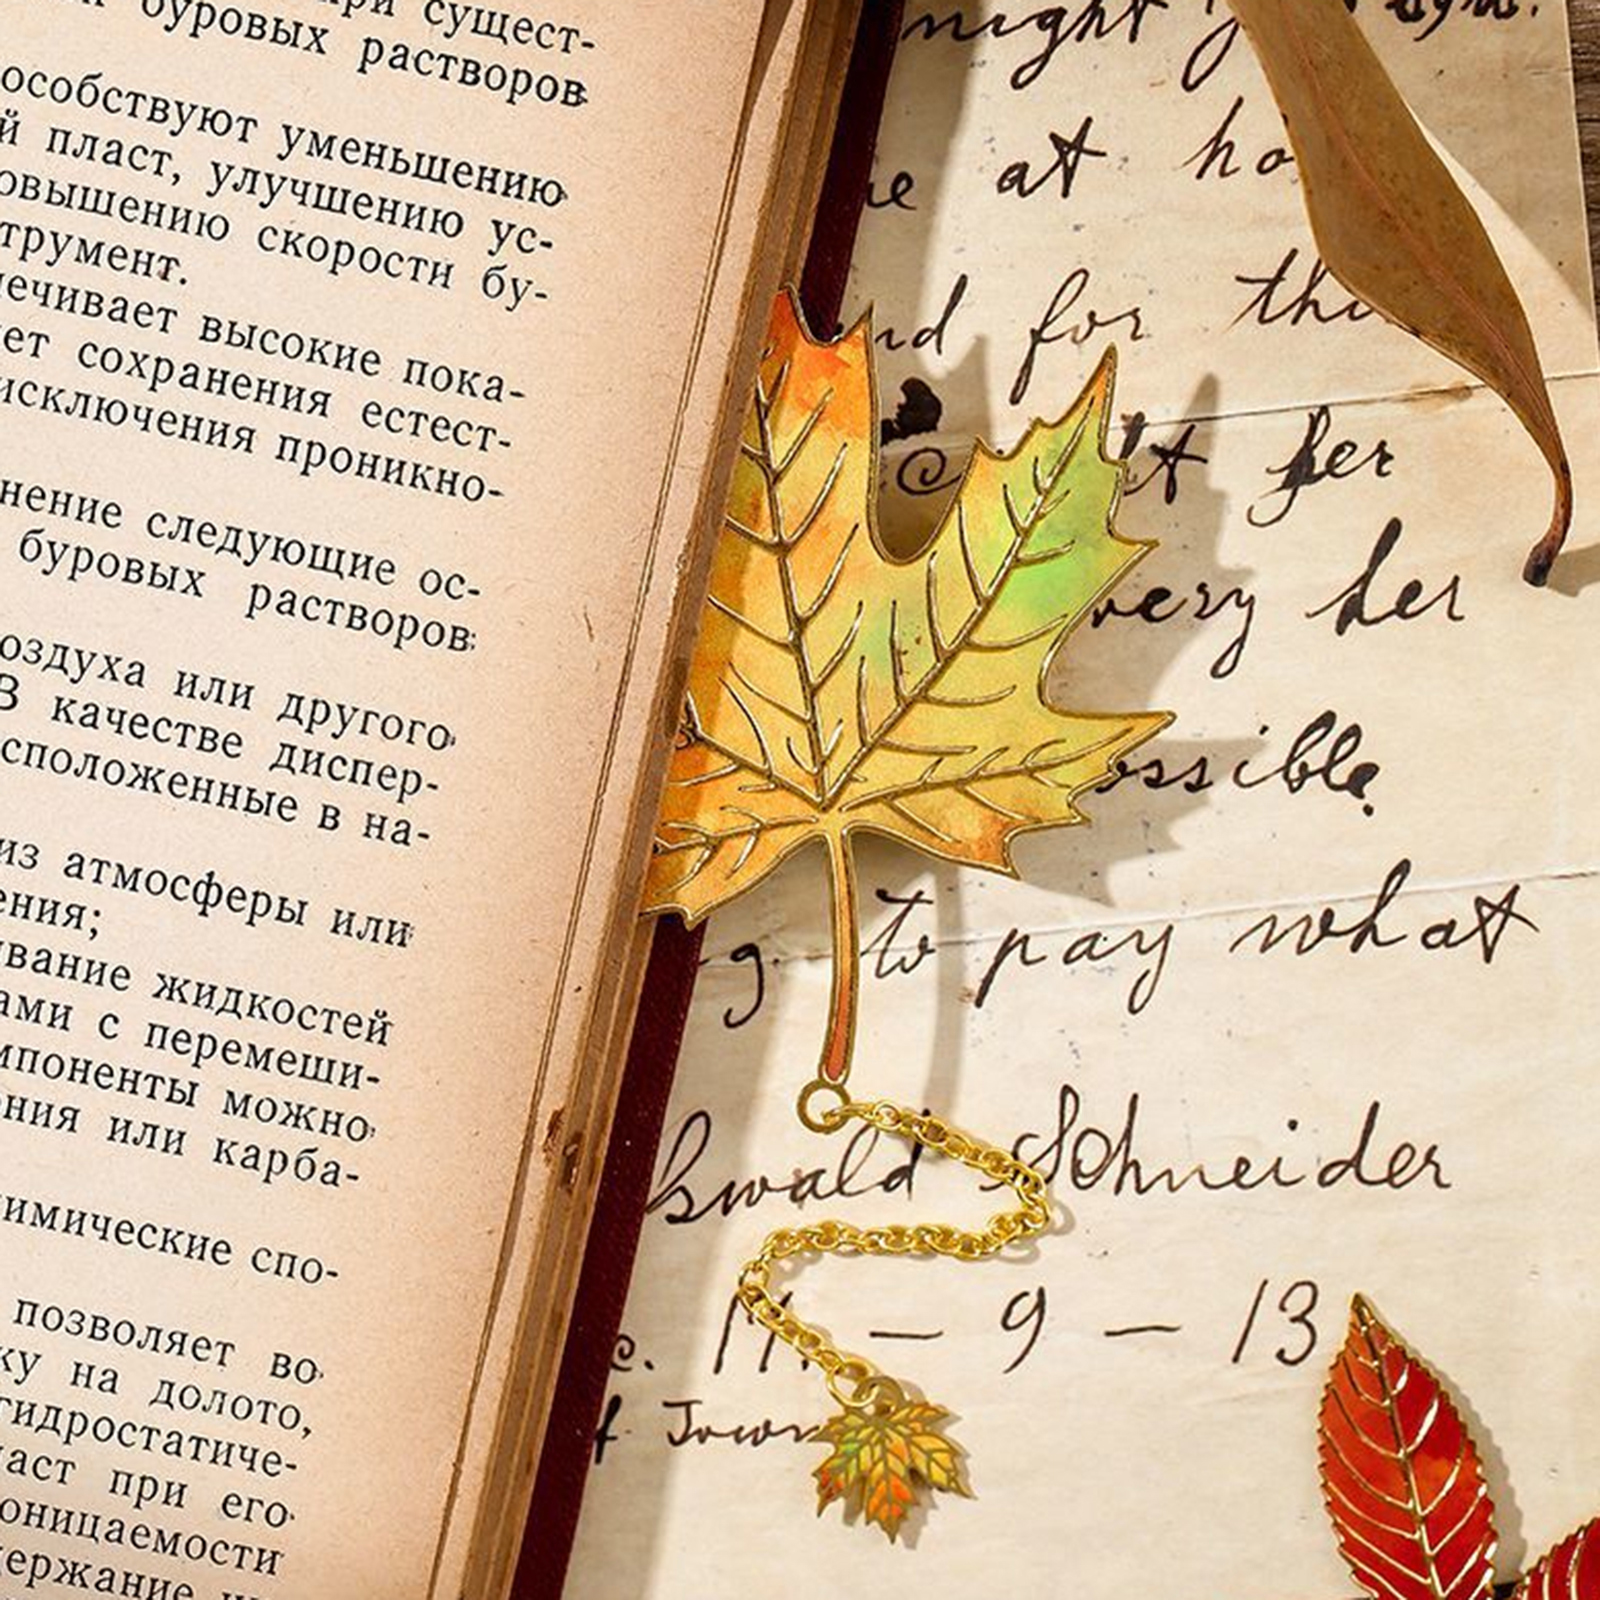 при сущест-
буровых растворов
особствуют уменьшению
й пласт, улучшению ус-
овышению скорости бу-
трумент.
ечивает высокие пока-
ет сохранения естест-
исключения проникно-
нение следующие ос-
буровых растворов:
оздуха или другого
В качестве диспер-
сположенные в на-
из атмосферы или
ения;
ивание жидкостей
ами с перемеши-
мпоненты можно
ния или карба-
имические спо-
позволяет во
ку на долото,
гидростатиче-
аст при его
оницаемости
держание
night
at ho
nd for thi
her
very her
ossible.
g. to pay what
Oswald Schneider
— 9 — 13
f Town